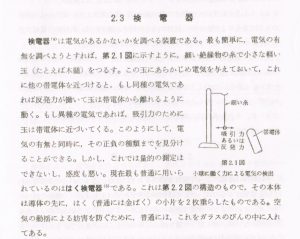 2.3 検電器
検電器は電気があるかないかを調べる装置である。最も簡単に、電気の有
無を調べようとすれば、第2.1図に示すように、細い絶縁物の糸で小さな軽い
玉(たとえば木髄)をつるす。この玉にあらかじめ電気を与えておいて、これ
に他の帯電体を近づけると、もし同種の電気であ
れば反発力が働いて玉は帯電体から離れるように
動く。もし異種の電気であれば、吸引力のために
玉は帯電体に近づいてくる。このようにして、電
気の有無と同時に、その正負の種類までを見分け
ることができる。しかし、これでは量的の測定は
できないし、感度も悪い。現在最も普通に用いら
れているのははく検電器である。これは第2.2図の構造のもので、その本体
は導体の先に、はく(普通には金ばく)の小片を2枚重らしたものである。空
気の動揺による妨害を防ぐために、普通には、これをガラスのびんの中に入れ
てある。
細い糸
吸引力
あるいは
反発力
帯電体
第2.1図
小球に働く力による電気の検出